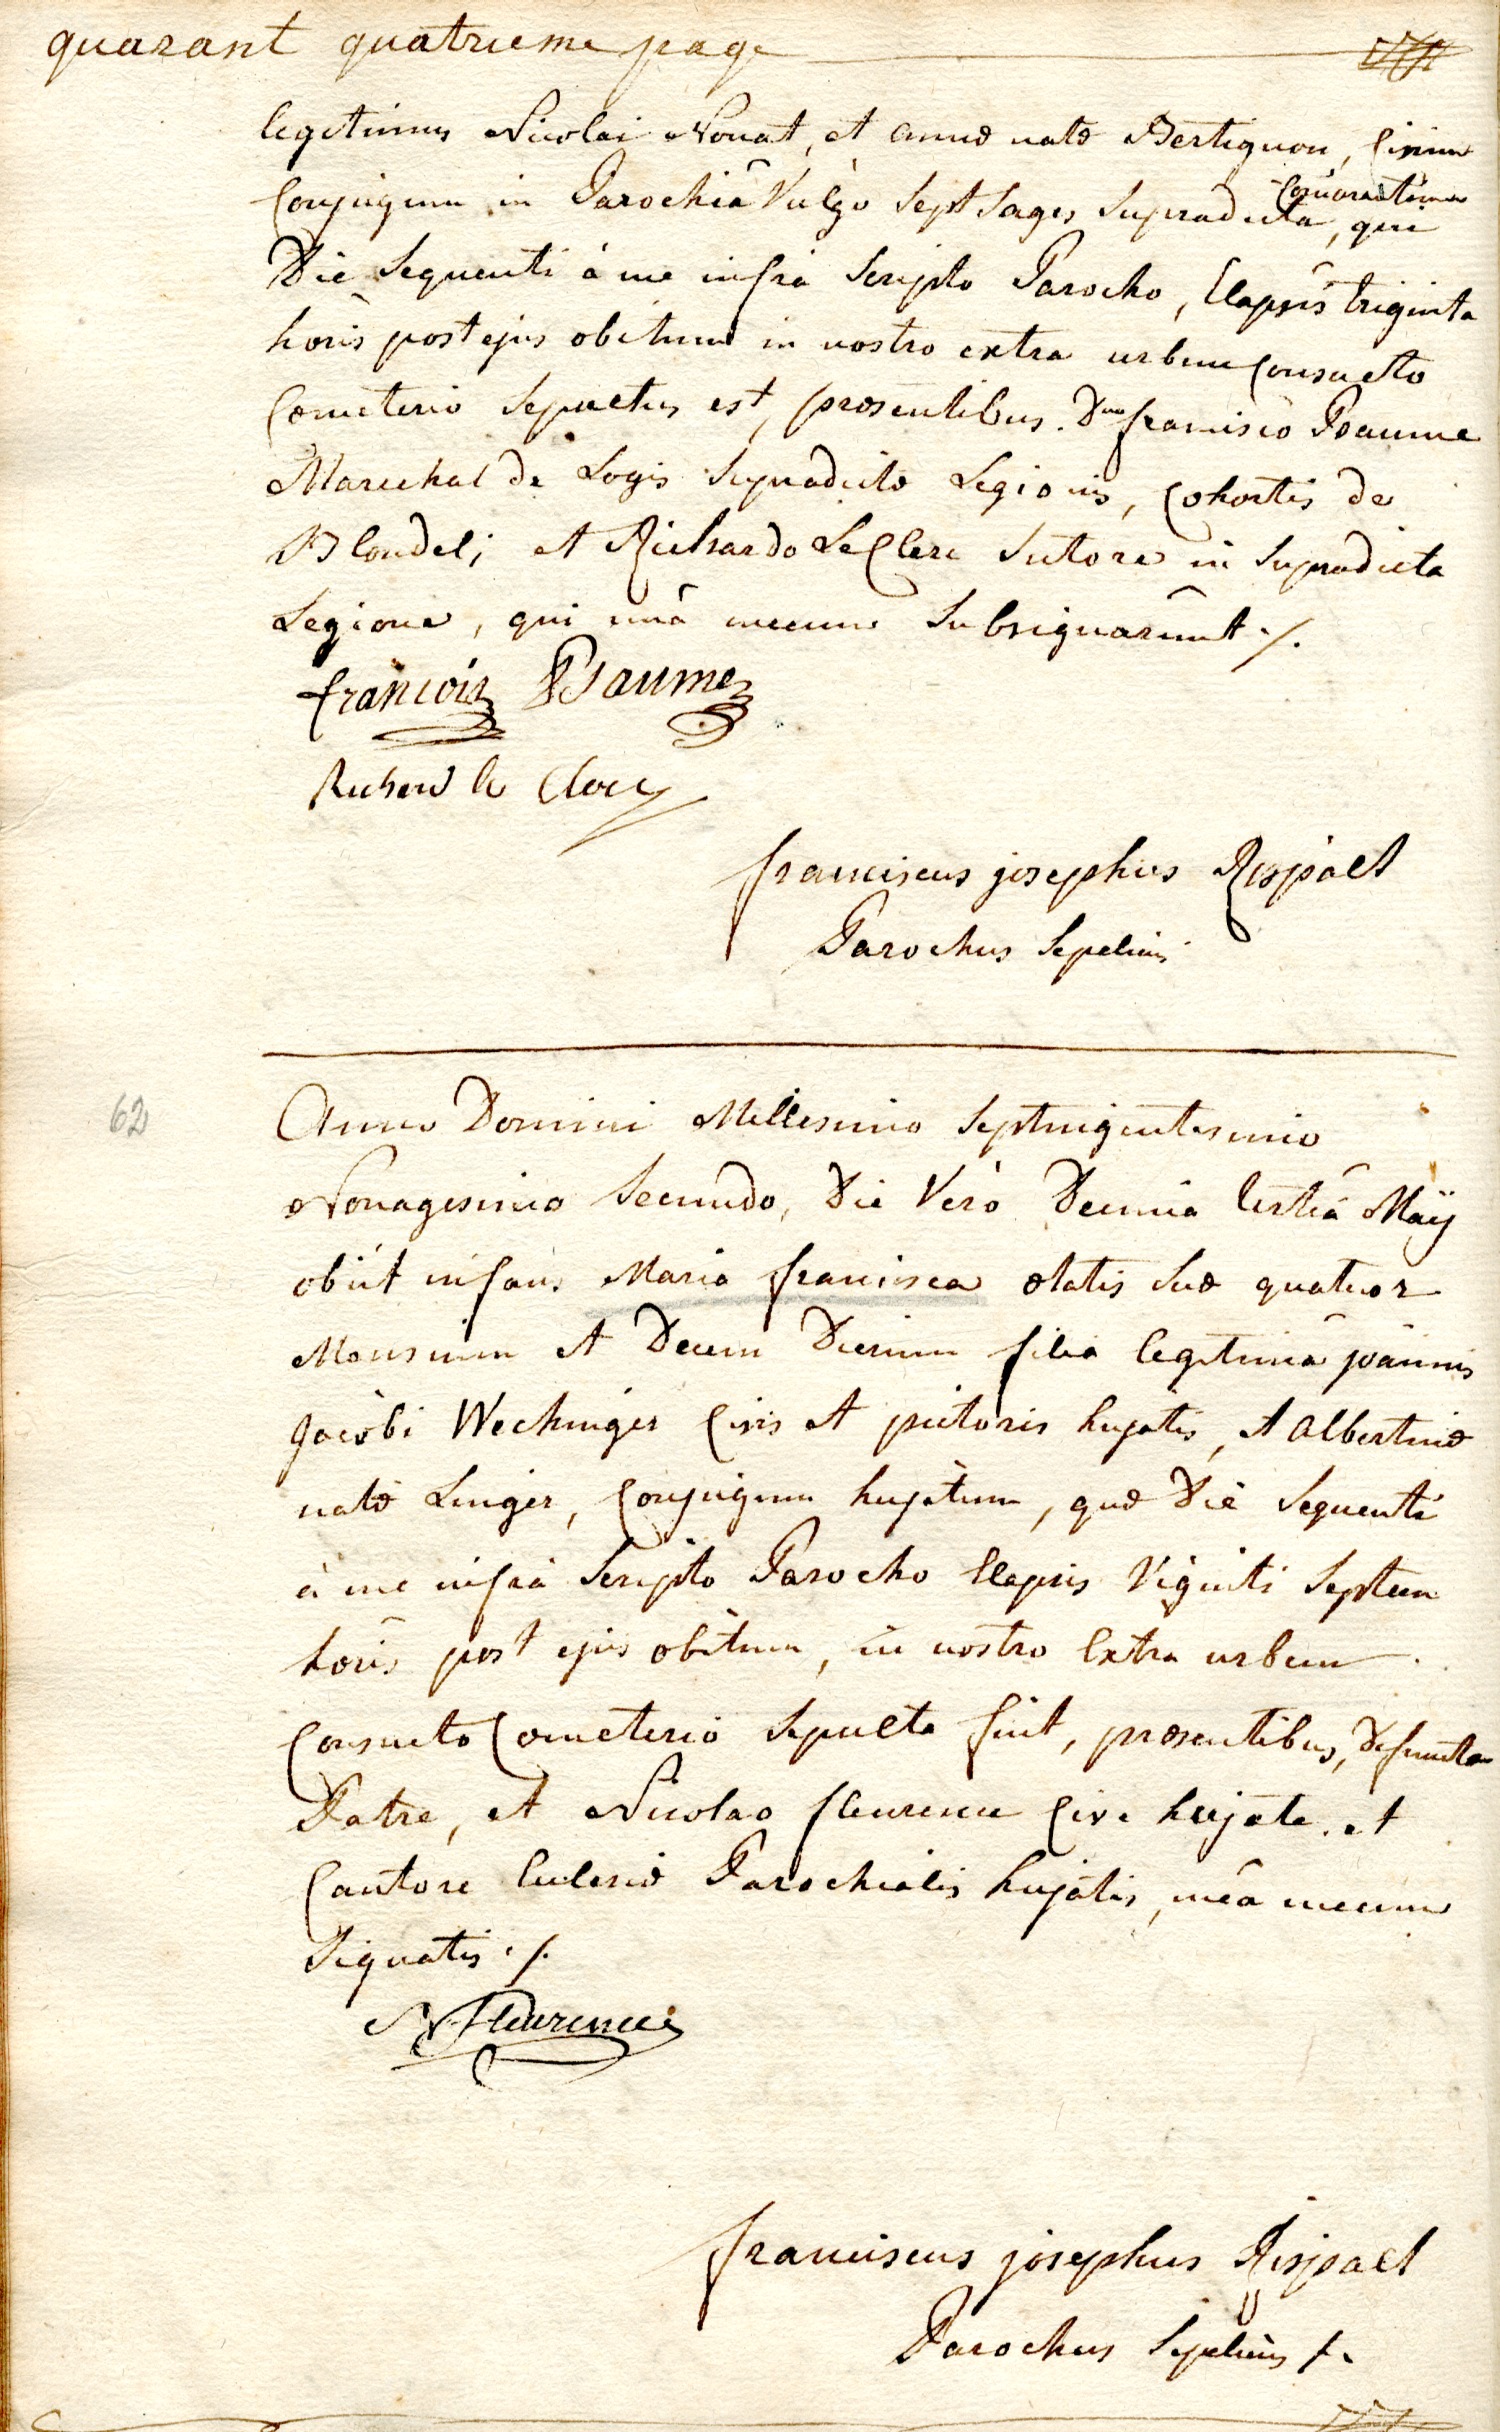 quarant quatrieme page
legitimus Nicolai Nouat, et annæ natæ Bertignon, Civium
Commorantium
Conjugum in Parochiâ Vulgò Sept Sages Supradicta, qui
Die Sequenti à me infrà Scripto Parocho, Elapsis triginta
horis post ejus obitum in nostro extra urbem Consueto
Cœmeterio Sepultus est, præsentibus Dno francisco Psaume
Marechal de Logis Supradictæ Legionis, Cohortis de
Blondel; et Richardo Le Clerc Sutore in Supradicta
Legione, qui unâ mecum Subsignarunt ./.
francois Psaume
Richard le Clerc
franciscus josephus Rispalt
Parochus Sepeliens
62
Anno Domini Millesimo Septingentesimo
Nonagesimo Secundo, Die Verò Decima tertiâ Maÿ
obiit infans Maria francisca ætatis Suæ quatuor
Mensium et Decem Dierum filia legitima joannis
Jacobi Wechinger Civis et pictoris hujatis, et Albertinæ
natæ Linger, Conjugum hujatum, quæ Die Sequenti
à me infrà Scripto Parocho Elapsis Viginti Septem
horis post ejus obitum, in nostro Extra urbem
Consueto Cœmeterio Sepulta fuit, præsentibus, defunctæ
Patre, et Nicolao fleurence Cive hujate et
Cantore Ecclesiæ Parochialis hujatis, unâ mecum
Signatis ./.
N Fleurence
franciscus josephus Rispalt
Parochus Sepeliens ./.